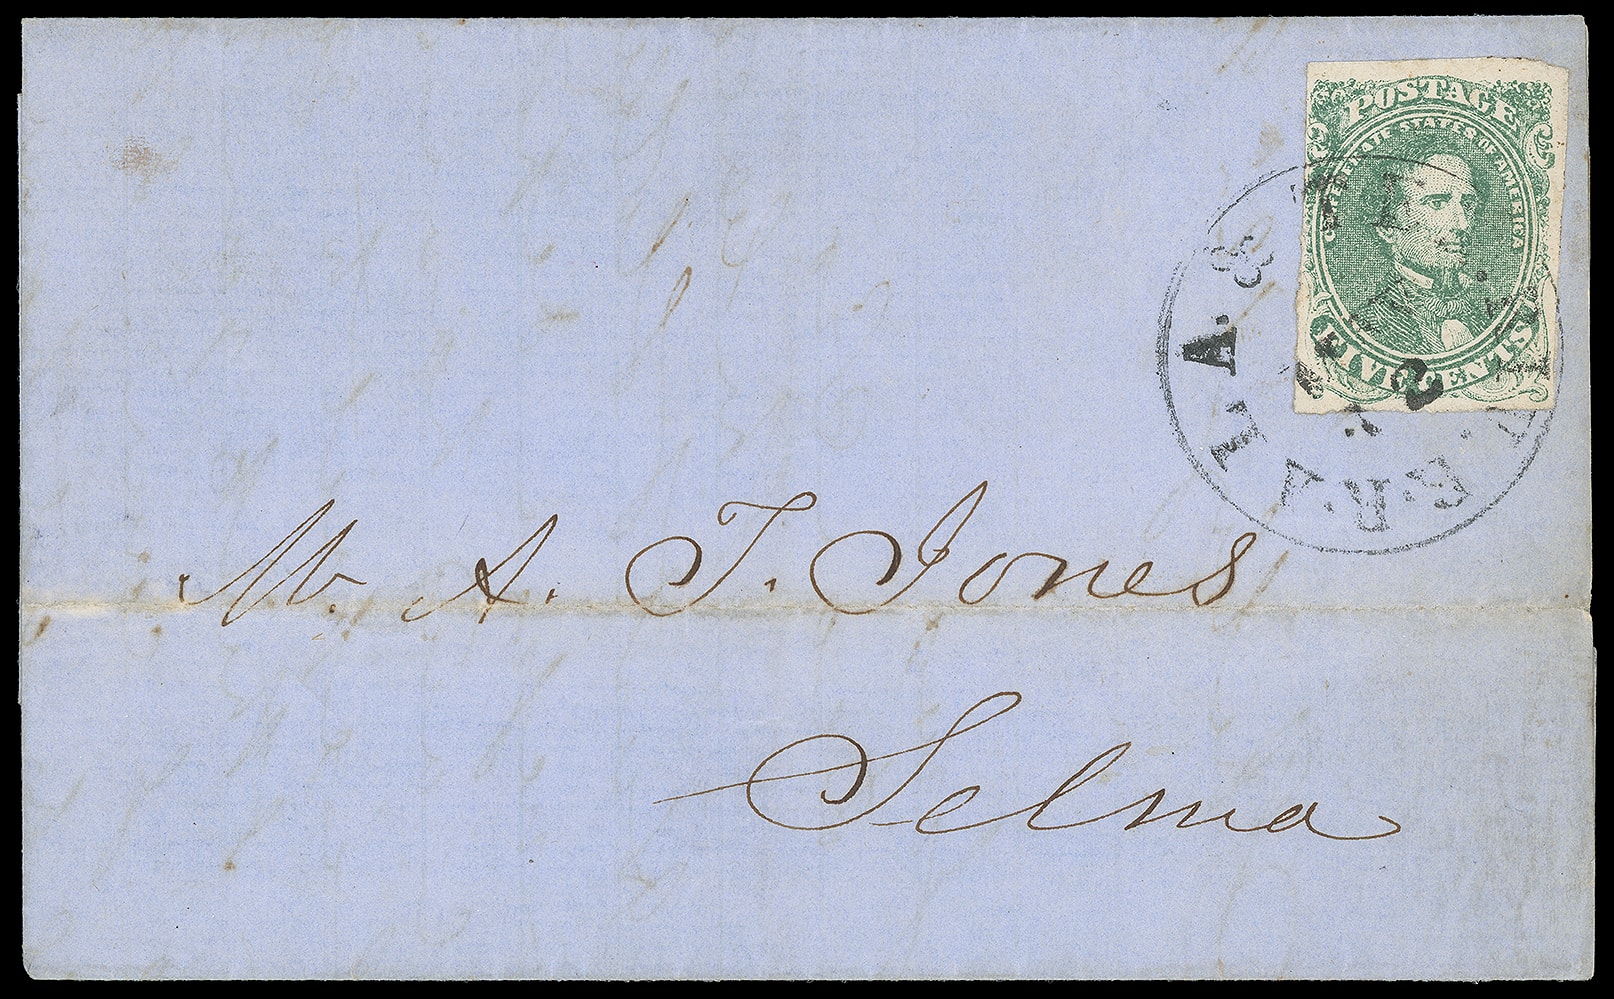 POSTAGE
CONFEDERATE STATES OF AMERICA
FIVE CENTS
Mr. A. T. Jones
Selma